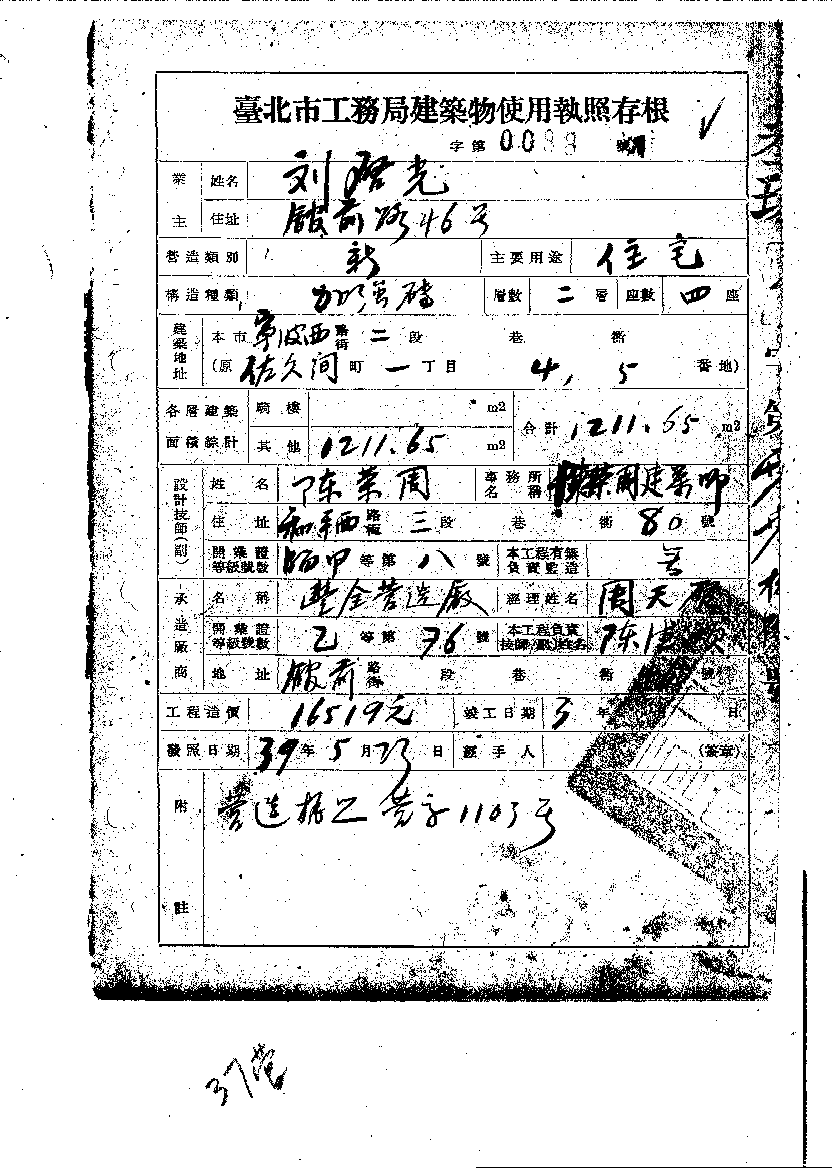 臺北市工務局建築物使用執照存根
字第 0089 號
業主 姓名 刘啓光
住址 舘前路46号
營造類別 新 主要用途 住宅
構造種類 加强磚 層數 二 層 座數 四 座
建築地址 本市 寧波西 路街 二 段 巷 衖
(原 佐久间 町 一 丁目 4, 5 番地)
各層建築面積綜計 騎樓 m2 合計 1211.65 m2
其他 1211.65 m2
設計技師(副) 姓名 陈荣周 事務所名稱 建築師
住址 和平西 路街 三 段 巷 衖 80 號
開業證等級號數 甲 等第 八 號 本工程有無負責監造
承造厰商 名稱 全营造厰 經理姓名 周天
開業證等級號數 乙 等第 76 號 本工程負責技師(副)姓名 陈
地址 舘前 路街 段 巷 衖 號
工程造價 16519元 竣工日期 3 年 日
發照日期 39 年 5 月 23 日 經手人 (簽章)
附註 营造执照 营字1103号
37营